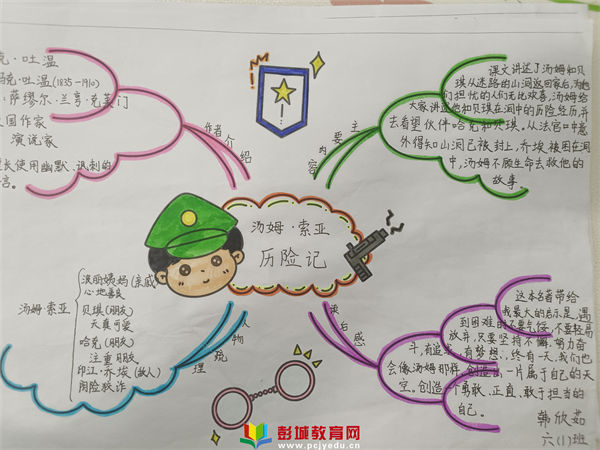 克·吐温
马克·吐温(1835-1910)
·萨缪尔·兰亨·克莱门
国作家
演说家
长使用幽默、讽刺的
言。
作者介绍
主要内容
课文讲述了汤姆和贝
琪从迷路的山洞返回家后,为他
们担忧的人们无比欢喜,汤姆给
大家讲述他和贝琪在洞中的历险经历,并
去看望伙伴哈克和贝琪,从法官口中意
外得知山洞已被封上,乔·埃被困在洞
中,汤姆不顾生命去救他的
故事.
汤姆·索亚
历险记
汤姆·索亚
波丽姨妈(亲戚)
心地善良
贝琪(朋友)
天真可爱
哈克(朋友)
注重
印江·乔·埃(敌人)
阴险狡诈
人物梳理
读后感
这本名著带给
我最大的启示是,遇
到困难时不要气馁,不要轻易
放弃,只要坚持不懈、努力奋
斗,有追求、有梦想,终有一天,我们也
会像汤姆那样,创造出一片属于自己的天
空。创造一个勇敢、正直、敢于担当的
自己。
韩欣茹
六(1)班
彭城教育网
www.pcjyedu.com